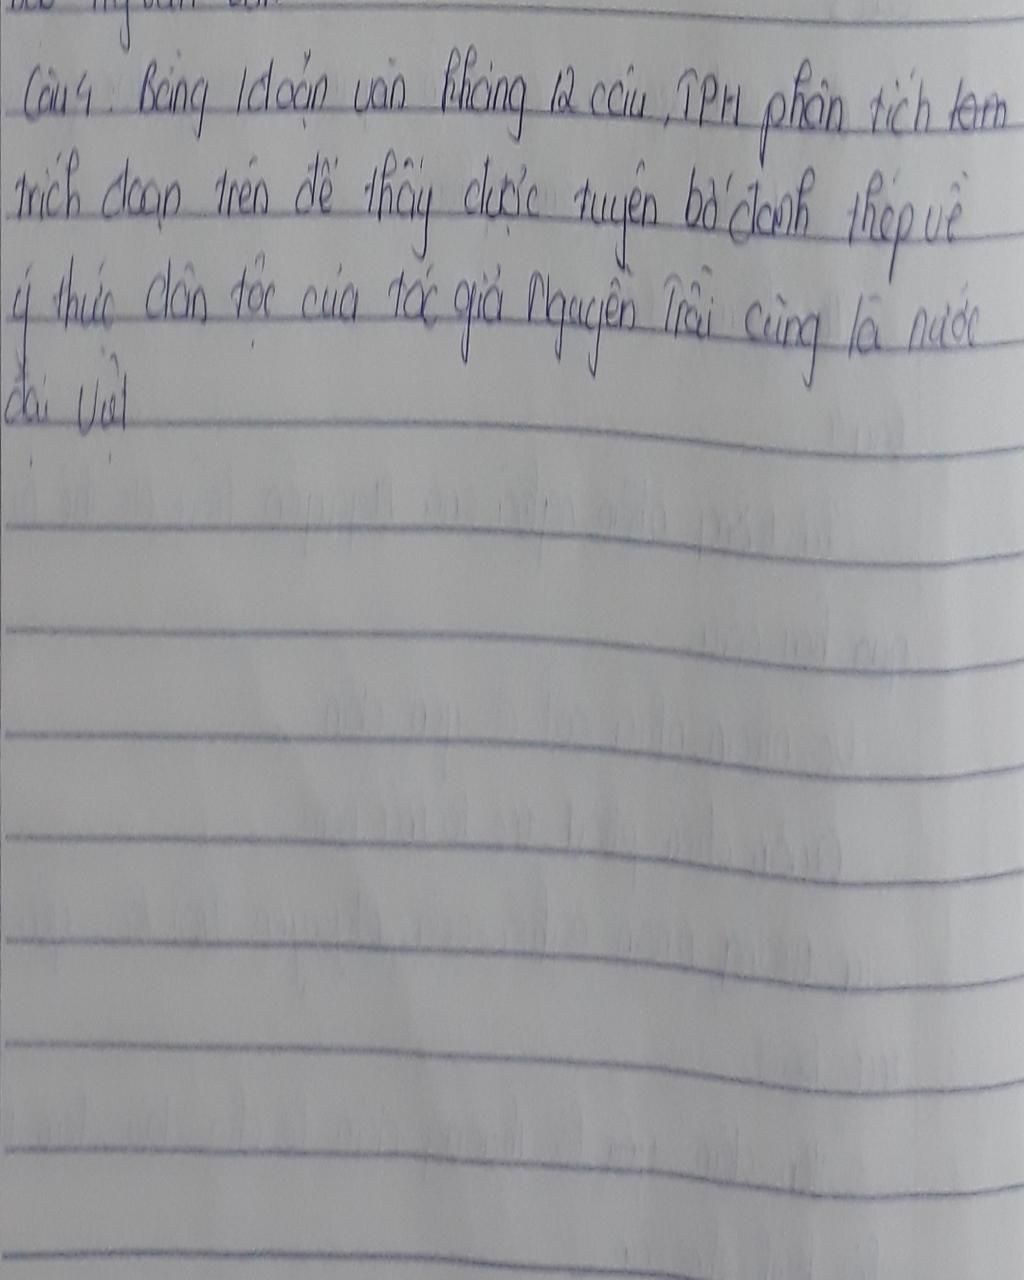 Câu 4. Bằng 1 đoạn văn khoảng 12 câu, TPH phân tích
trích đoạn trên để thấy được tuyên bố đanh thép về
ý thức dân tộc của tác giả Nguyễn Trãi cũng là nước
đại Việt